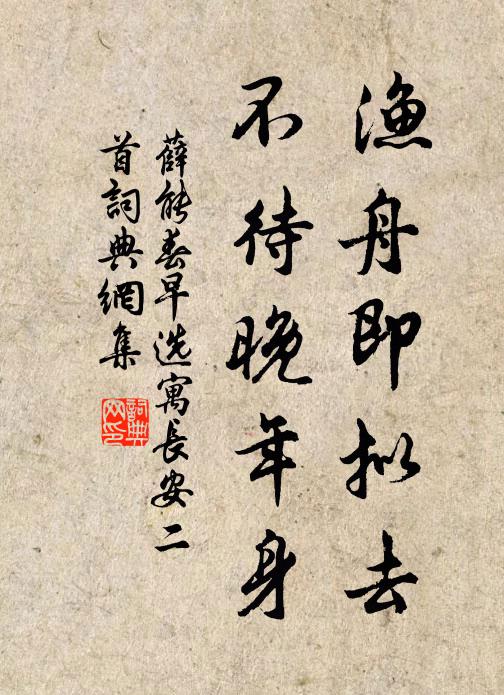 漁舟即拟去
不待晚年身
薛能春早选寓長安二
首詞典網集
詞典
网印